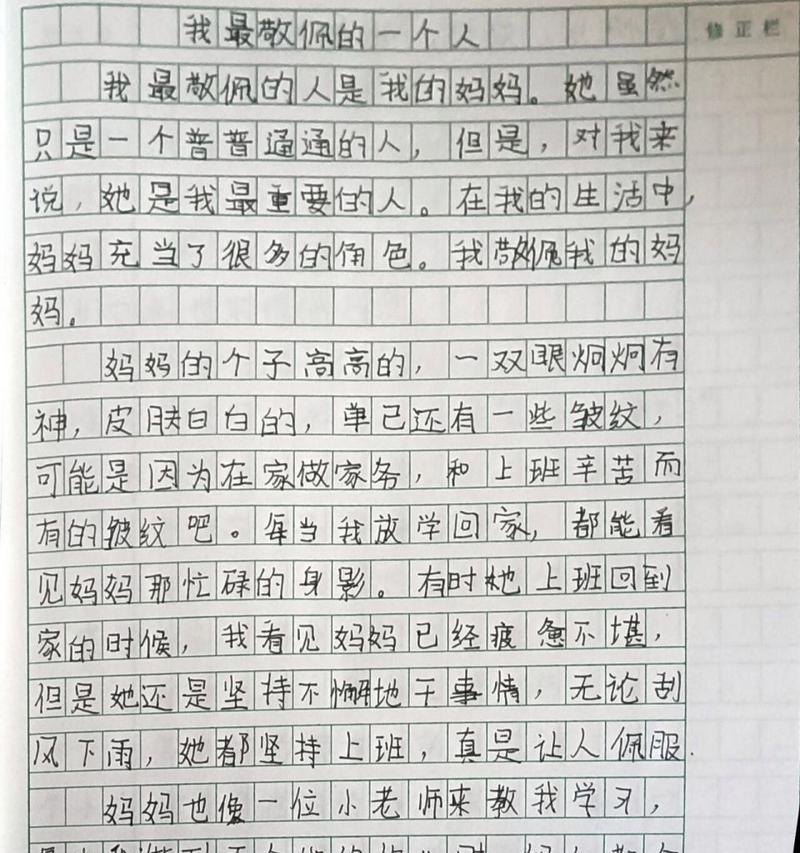 我最敬佩的一个人
修正栏
我最敬佩的人是我的妈妈。她虽然
只是一个普普通通的人，但是，对我来
说，她是我最重要的人。在我的生活中，
妈妈充当了很多的角色。我敬佩我的妈
妈。
妈妈的个子高高的，一双眼炯炯有
神，皮肤白白的，单已还有一些皱纹，
可能是因为在家做家务，和上班辛苦而
有的皱纹吧。每当我放学回家，都能看
见妈妈那忙碌的身影。有时她上班回到
家的时候，我看见妈妈已经疲惫不堪，
但是她还是坚持不懈地干事情，无论刮
风下雨，她都坚持上班，真是让人佩服.
妈妈也像一位小老师来教我学习，